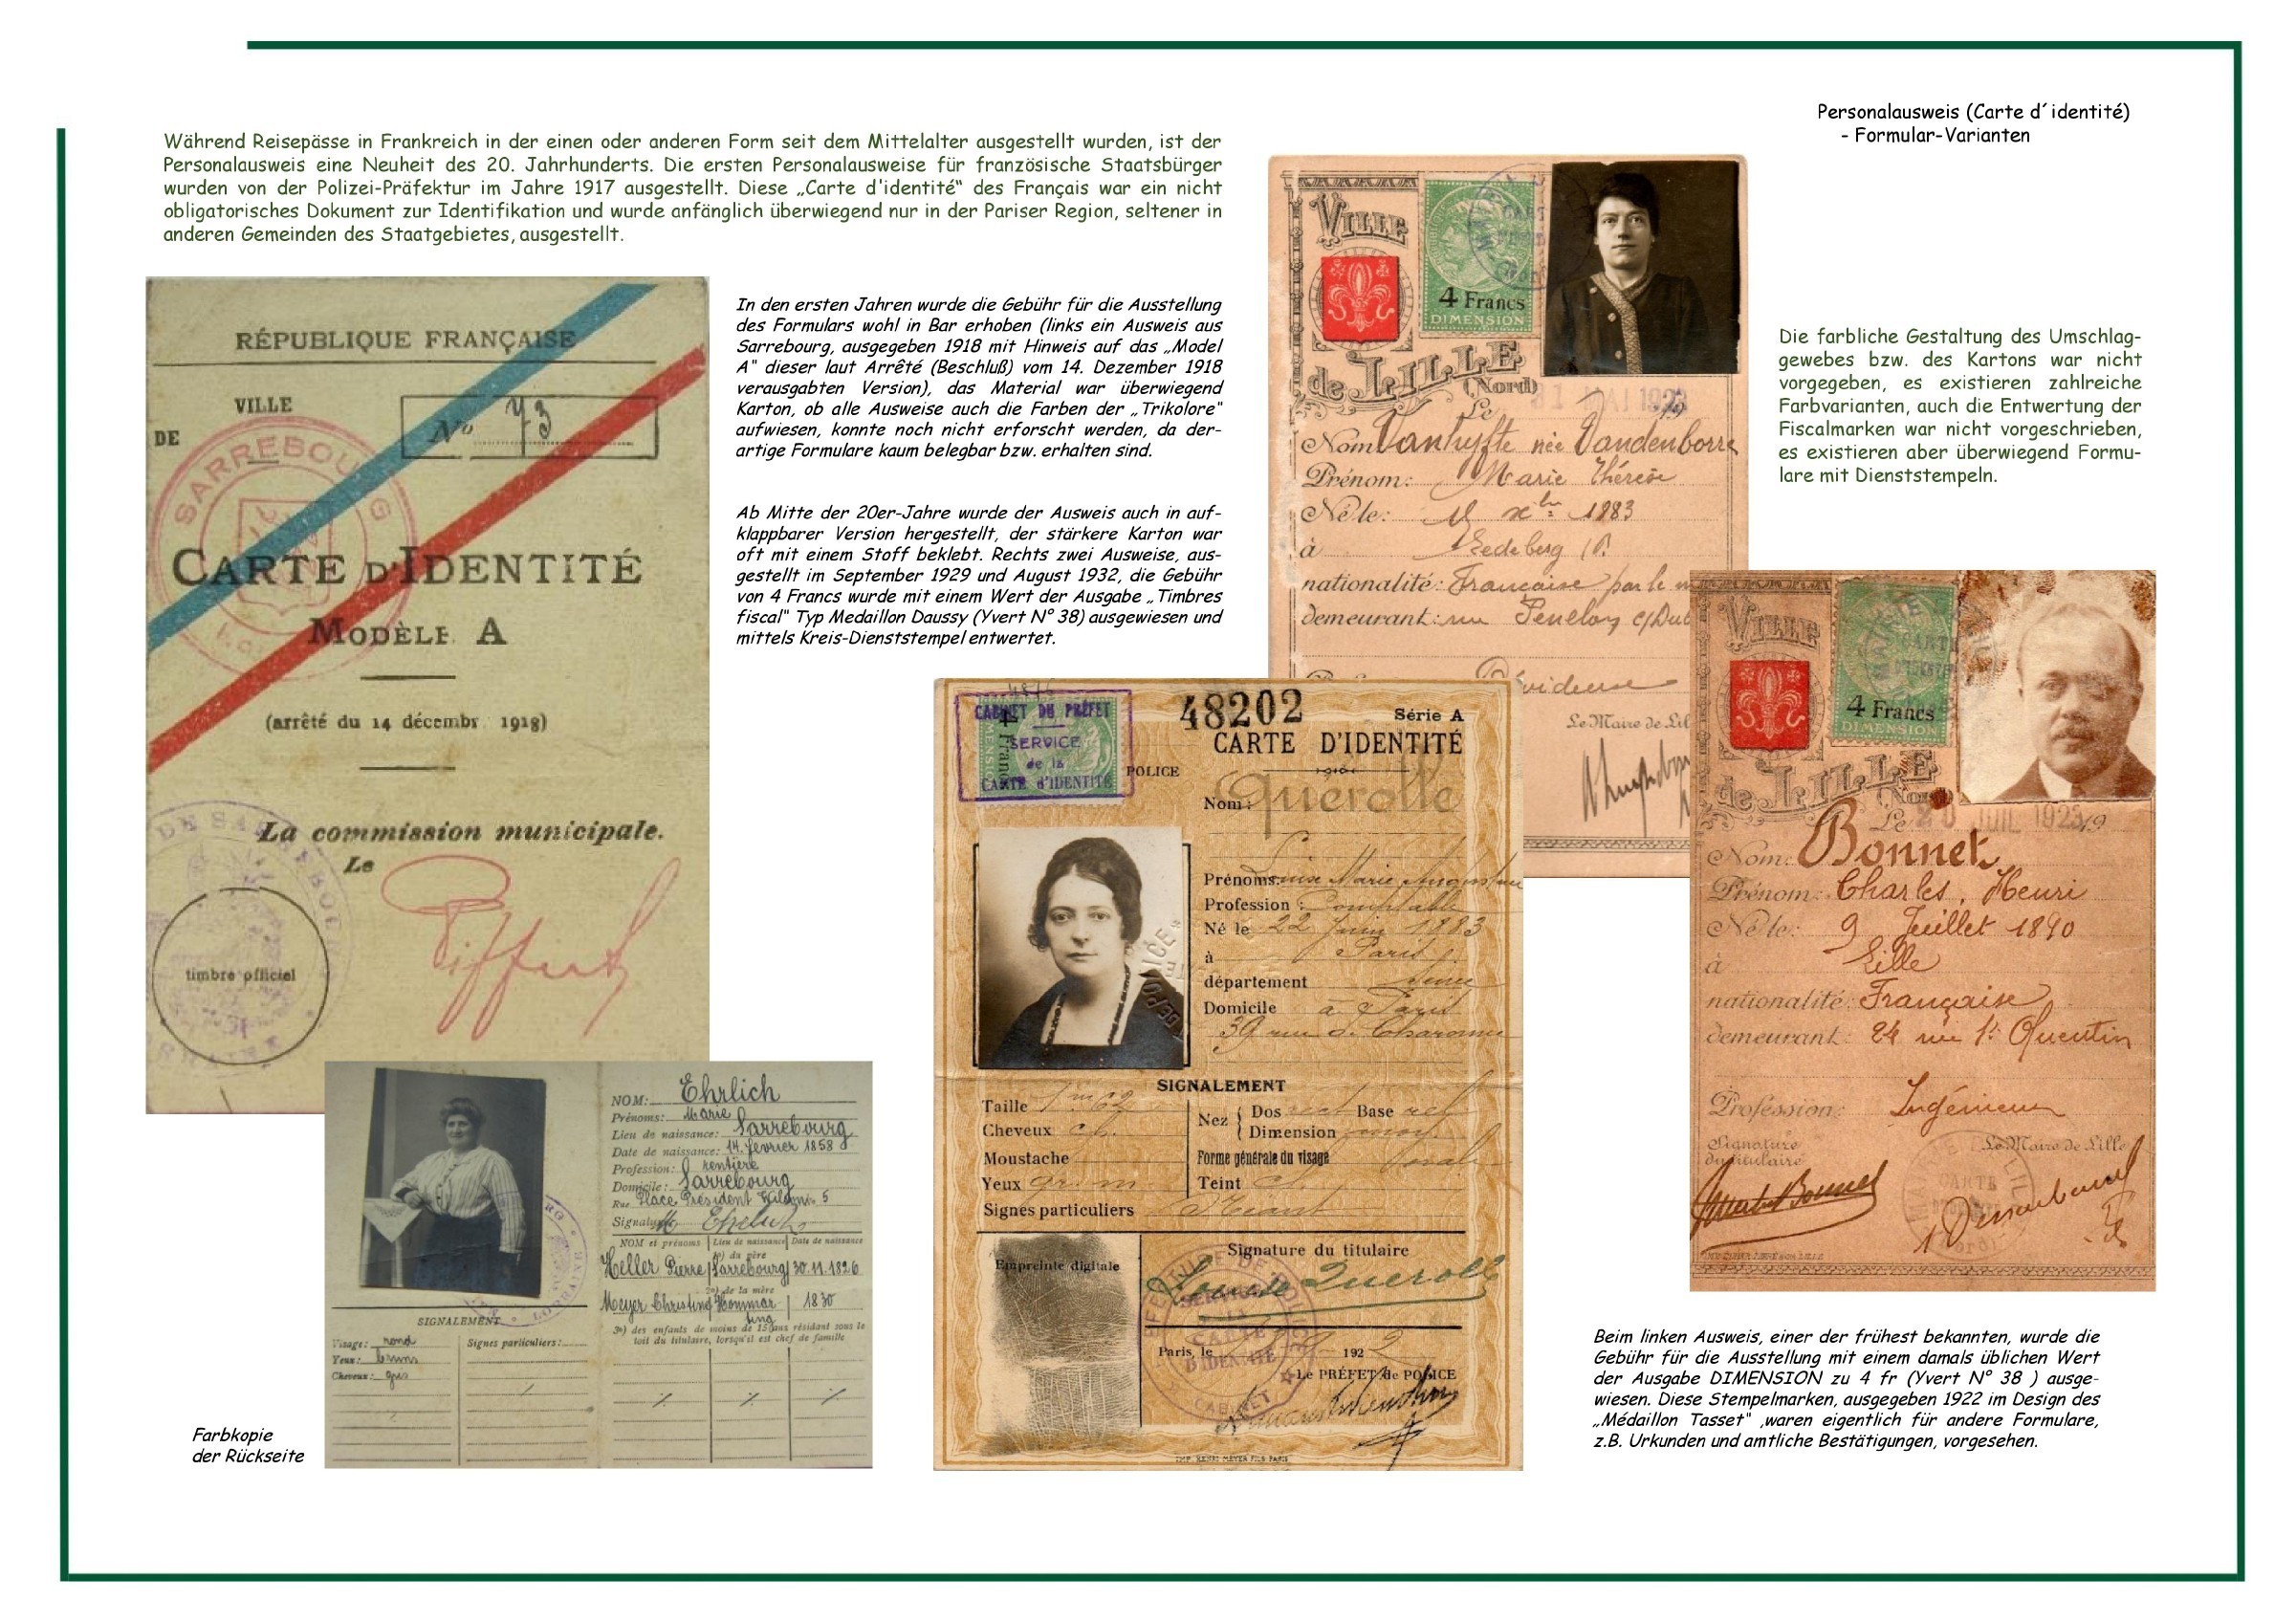 Personalausweis (Carte d´identité)
- Formular-Varianten
Während Reisepässe in Frankreich in der einen oder anderen Form seit dem Mittelalter ausgestellt wurden, ist der
Personalausweis eine Neuheit des 20. Jahrhunderts. Die ersten Personalausweise für französische Staatsbürger
wurden von der Polizei-Präfektur im Jahre 1917 ausgestellt. Diese „Carte d'identité“ des Français war ein nicht
obligatorisches Dokument zur Identifikation und wurde anfänglich überwiegend nur in der Pariser Region, seltener in
anderen Gemeinden des Staatgebietes, ausgestellt.
RÉPUBLIQUE FRANÇAISE
VILLE
DE
No 73
SARREBOURG
CARTE D'IDENTITÉ
MODÈLE A
(arrêté du 14 décembr 1918)
La commission municipale.
Le
timbre officiel
In den ersten Jahren wurde die Gebühr für die Ausstellung
des Formulars wohl in Bar erhoben (links ein Ausweis aus
Sarrebourg, ausgegeben 1918 mit Hinweis auf das „Model
A“ dieser laut Arrêté (Beschluß) vom 14. Dezember 1918
verausgabten Version), das Material war überwiegend
Karton, ob alle Ausweise auch die Farben der „Trikolore“
aufwiesen, konnte noch nicht erforscht werden, da der-
artige Formulare kaum belegbar bzw. erhalten sind.
Ab Mitte der 20er-Jahre wurde der Ausweis auch in auf-
klappbarer Version hergestellt, der stärkere Karton war
oft mit einem Stoff beklebt. Rechts zwei Ausweise, aus-
gestellt im September 1929 und August 1932, die Gebühr
von 4 Francs wurde mit einem Wert der Ausgabe „Timbres
fiscal“ Typ Medaillon Daussy (Yvert N° 38) ausgewiesen und
mittels Kreis-Dienststempel entwertet.
VILLE
4 Francs
DIMENSION
de LILLE
(Nord)
Le
Nom
née Vandenborre
Prénom: Marie Thérèse
Né le: 1883
à
nationalité: Française par le m
demeurant: rue
Le Maire de Lil
Die farbliche Gestaltung des Umschlag-
gewebes bzw. des Kartons war nicht
vorgegeben, es existieren zahlreiche
Farbvarianten, auch die Entwertung der
Fiscalmarken war nicht vorgeschrieben,
es existieren aber überwiegend Formu-
lare mit Dienststempeln.
VILLE
4 Francs
DIMENSION
de LILLE
(Nord)
Le JUIL 1923 19
Nom: Bonnet
Prénom: Charles, Henri
Né le: 9 Juillet 1890
à Lille
nationalité: Française
demeurant: 24 rue St Quentin
Profession: Ingénieur
Signature
du titulaire
Le Maire de Lille
CABINET DU PRÉFET
SERVICE
de la
CARTE d'IDENTITÉ
POLICE
48202
Série A
CARTE D'IDENTITÉ
Nom: Querolle
Prénoms: Louise Marie
Profession: Comptable
Né le 22 Juin 1883
à Paris
département Seine
Domicile à Paris
39 rue d. Charonne
SIGNALEMENT
Taille 1m 62
Cheveux ch.
Moustache
Yeux
Signes particuliers
Nez
Dos rect Base
Dimension moy.
Forme générale du visage ovale
Teint
Empreinte digitale
Signature du titulaire
Louise Querolle
Paris, le 192
Le PRÉFET de POLICE
IMP. HENRI MEYER FILS PARIS
NOM: Ehrlich
Prénoms: Marie
Lieu de naissance: Sarrebourg
Date de naissance: 14. fevrier 1858
Profession: rentière
Domicile: Sarrebourg
Rue Place Président 5
Signature
NOM et prénoms Lieu de naissance Date de naissance
1o) du père
Heller Pierre Sarrebourg 30.11.1826
2o) de la mère
Meyer Christine Hommarting 1830
3o) des enfants de moins de 15 ans résidant sous le
toit du titulaire, lorsqu'il est chef de famille
SIGNALEMENT
Visage: rond
Yeux: bruns
Cheveux: gris
Signes particuliers:
Farbkopie
der Rückseite
Beim linken Ausweis, einer der frühest bekannten, wurde die
Gebühr für die Ausstellung mit einem damals üblichen Wert
der Ausgabe DIMENSION zu 4 fr (Yvert N° 38 ) ausge-
wiesen. Diese Stempelmarken, ausgegeben 1922 im Design des
„Médaillon Tasset“ ,waren eigentlich für andere Formulare,
z.B. Urkunden und amtliche Bestätigungen, vorgesehen.